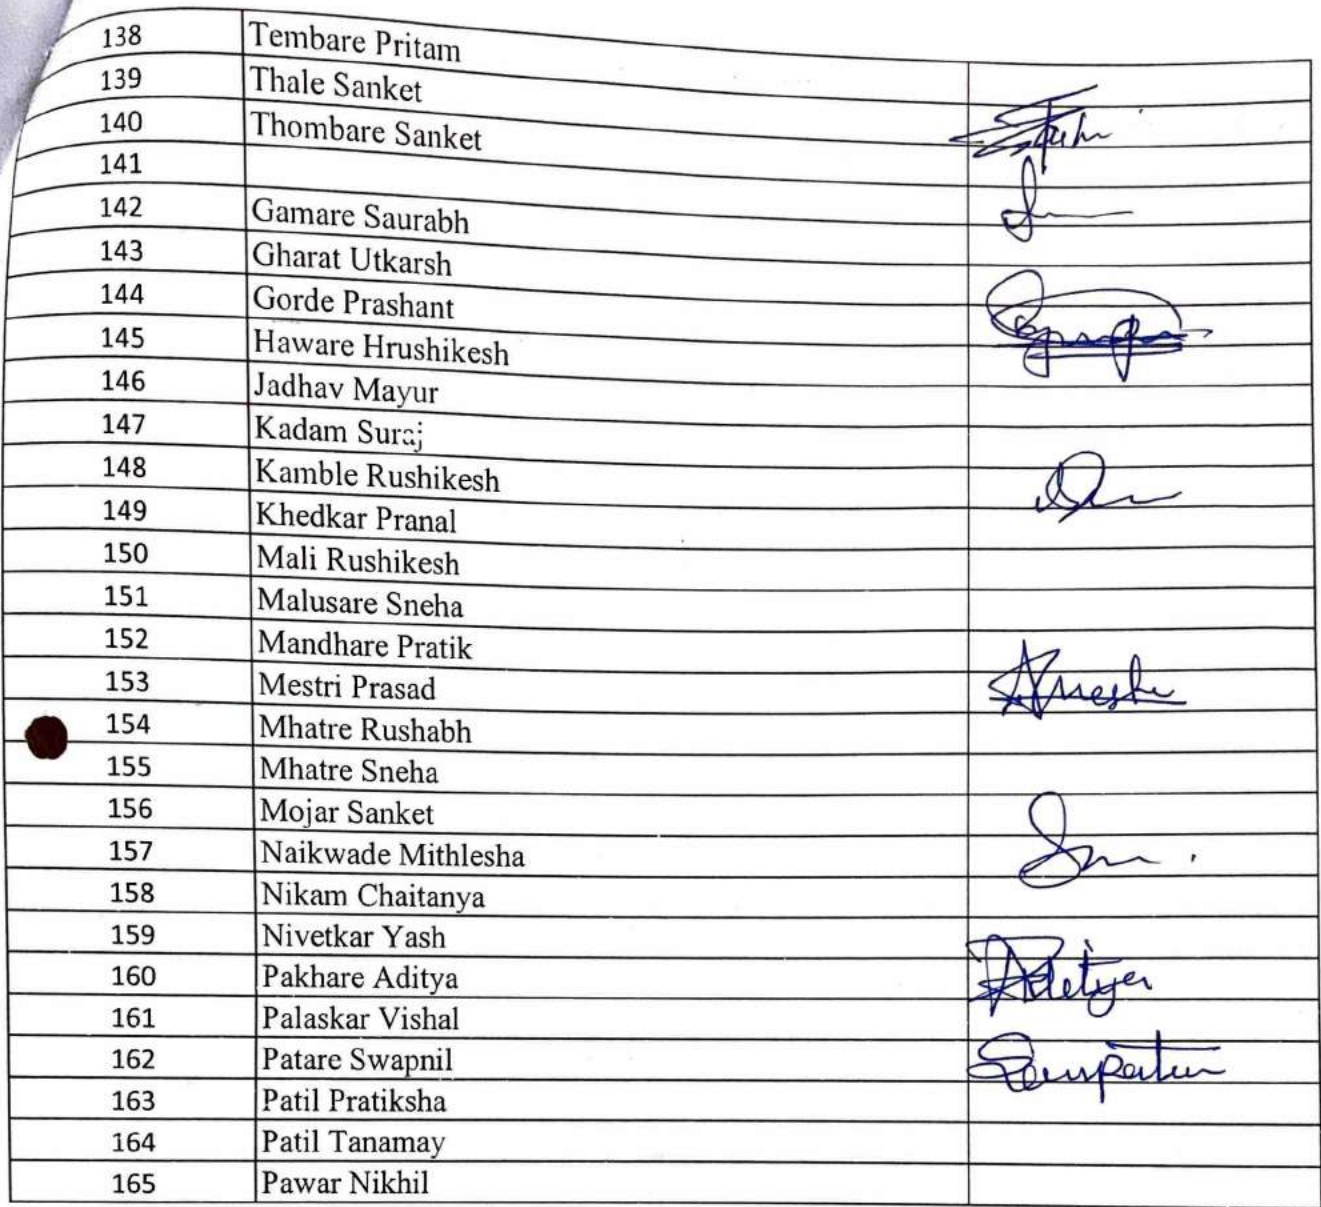 138 Tembare Pritam
139 Thale Sanket
140 Thombare Sanket
141
142 Gamare Saurabh
143 Gharat Utkarsh
144 Gorde Prashant
145 Haware Hrushikesh
146 Jadhav Mayur
147 Kadam Suraj
148 Kamble Rushikesh
149 Khedkar Pranal
150 Mali Rushikesh
151 Malusare Sneha
152 Mandhare Pratik
153 Mestri Prasad
154 Mhatre Rushabh
155 Mhatre Sneha
156 Mojar Sanket
157 Naikwade Mithlesha
158 Nikam Chaitanya
159 Nivetkar Yash
160 Pakhare Aditya Aditya
161 Palaskar Vishal
162 Patare Swapnil
163 Patil Pratiksha
164 Patil Tanamay
165 Pawar Nikhil